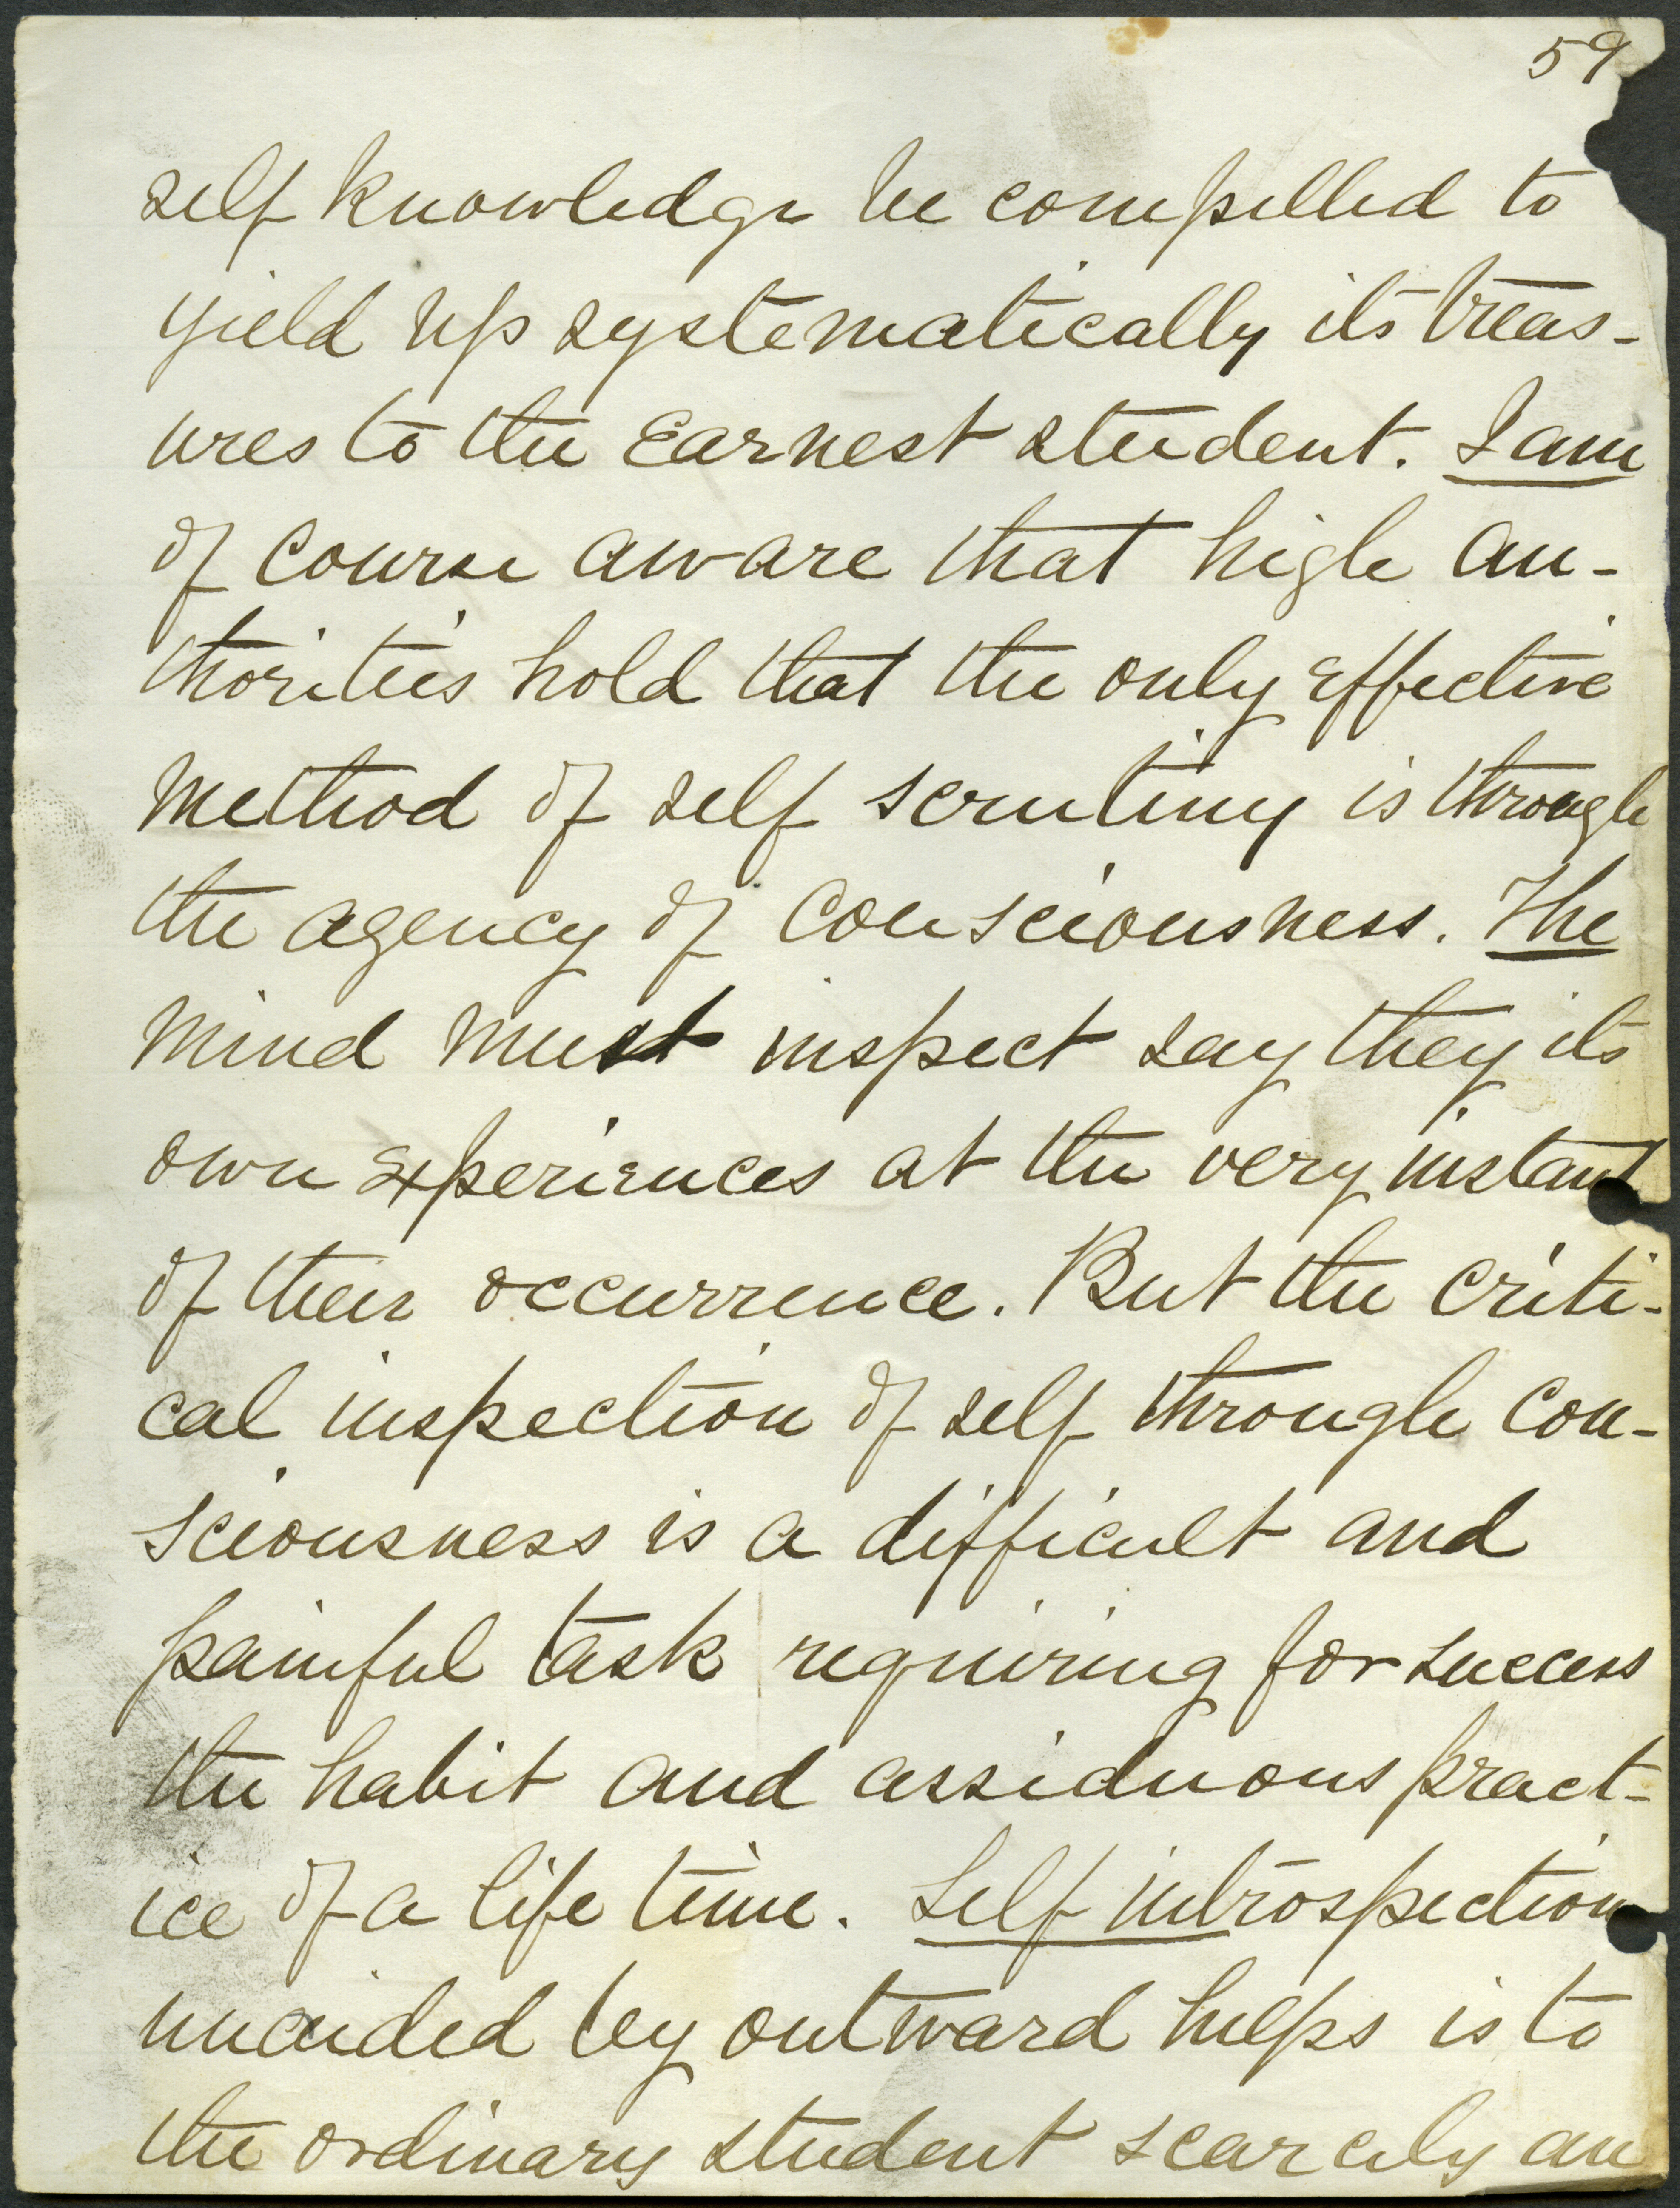 59
self knowledge be compelled to
yield up systematically its treas-
ures to the earnest student. I am
of course aware that high au-
thorities hold that the only effective
method of self scrutiny is through
the agency of consciousness. The
mind must inspect say they its
own experiences at the very instant
of their occurrence. But the criti-
cal inspection of self through con-
sciousness is a difficult and
painful task requiring for success
the habit and assiduous pract-
ice of a life time. Self introspection
unaided by outward helps is to
the ordinary student scarcely an